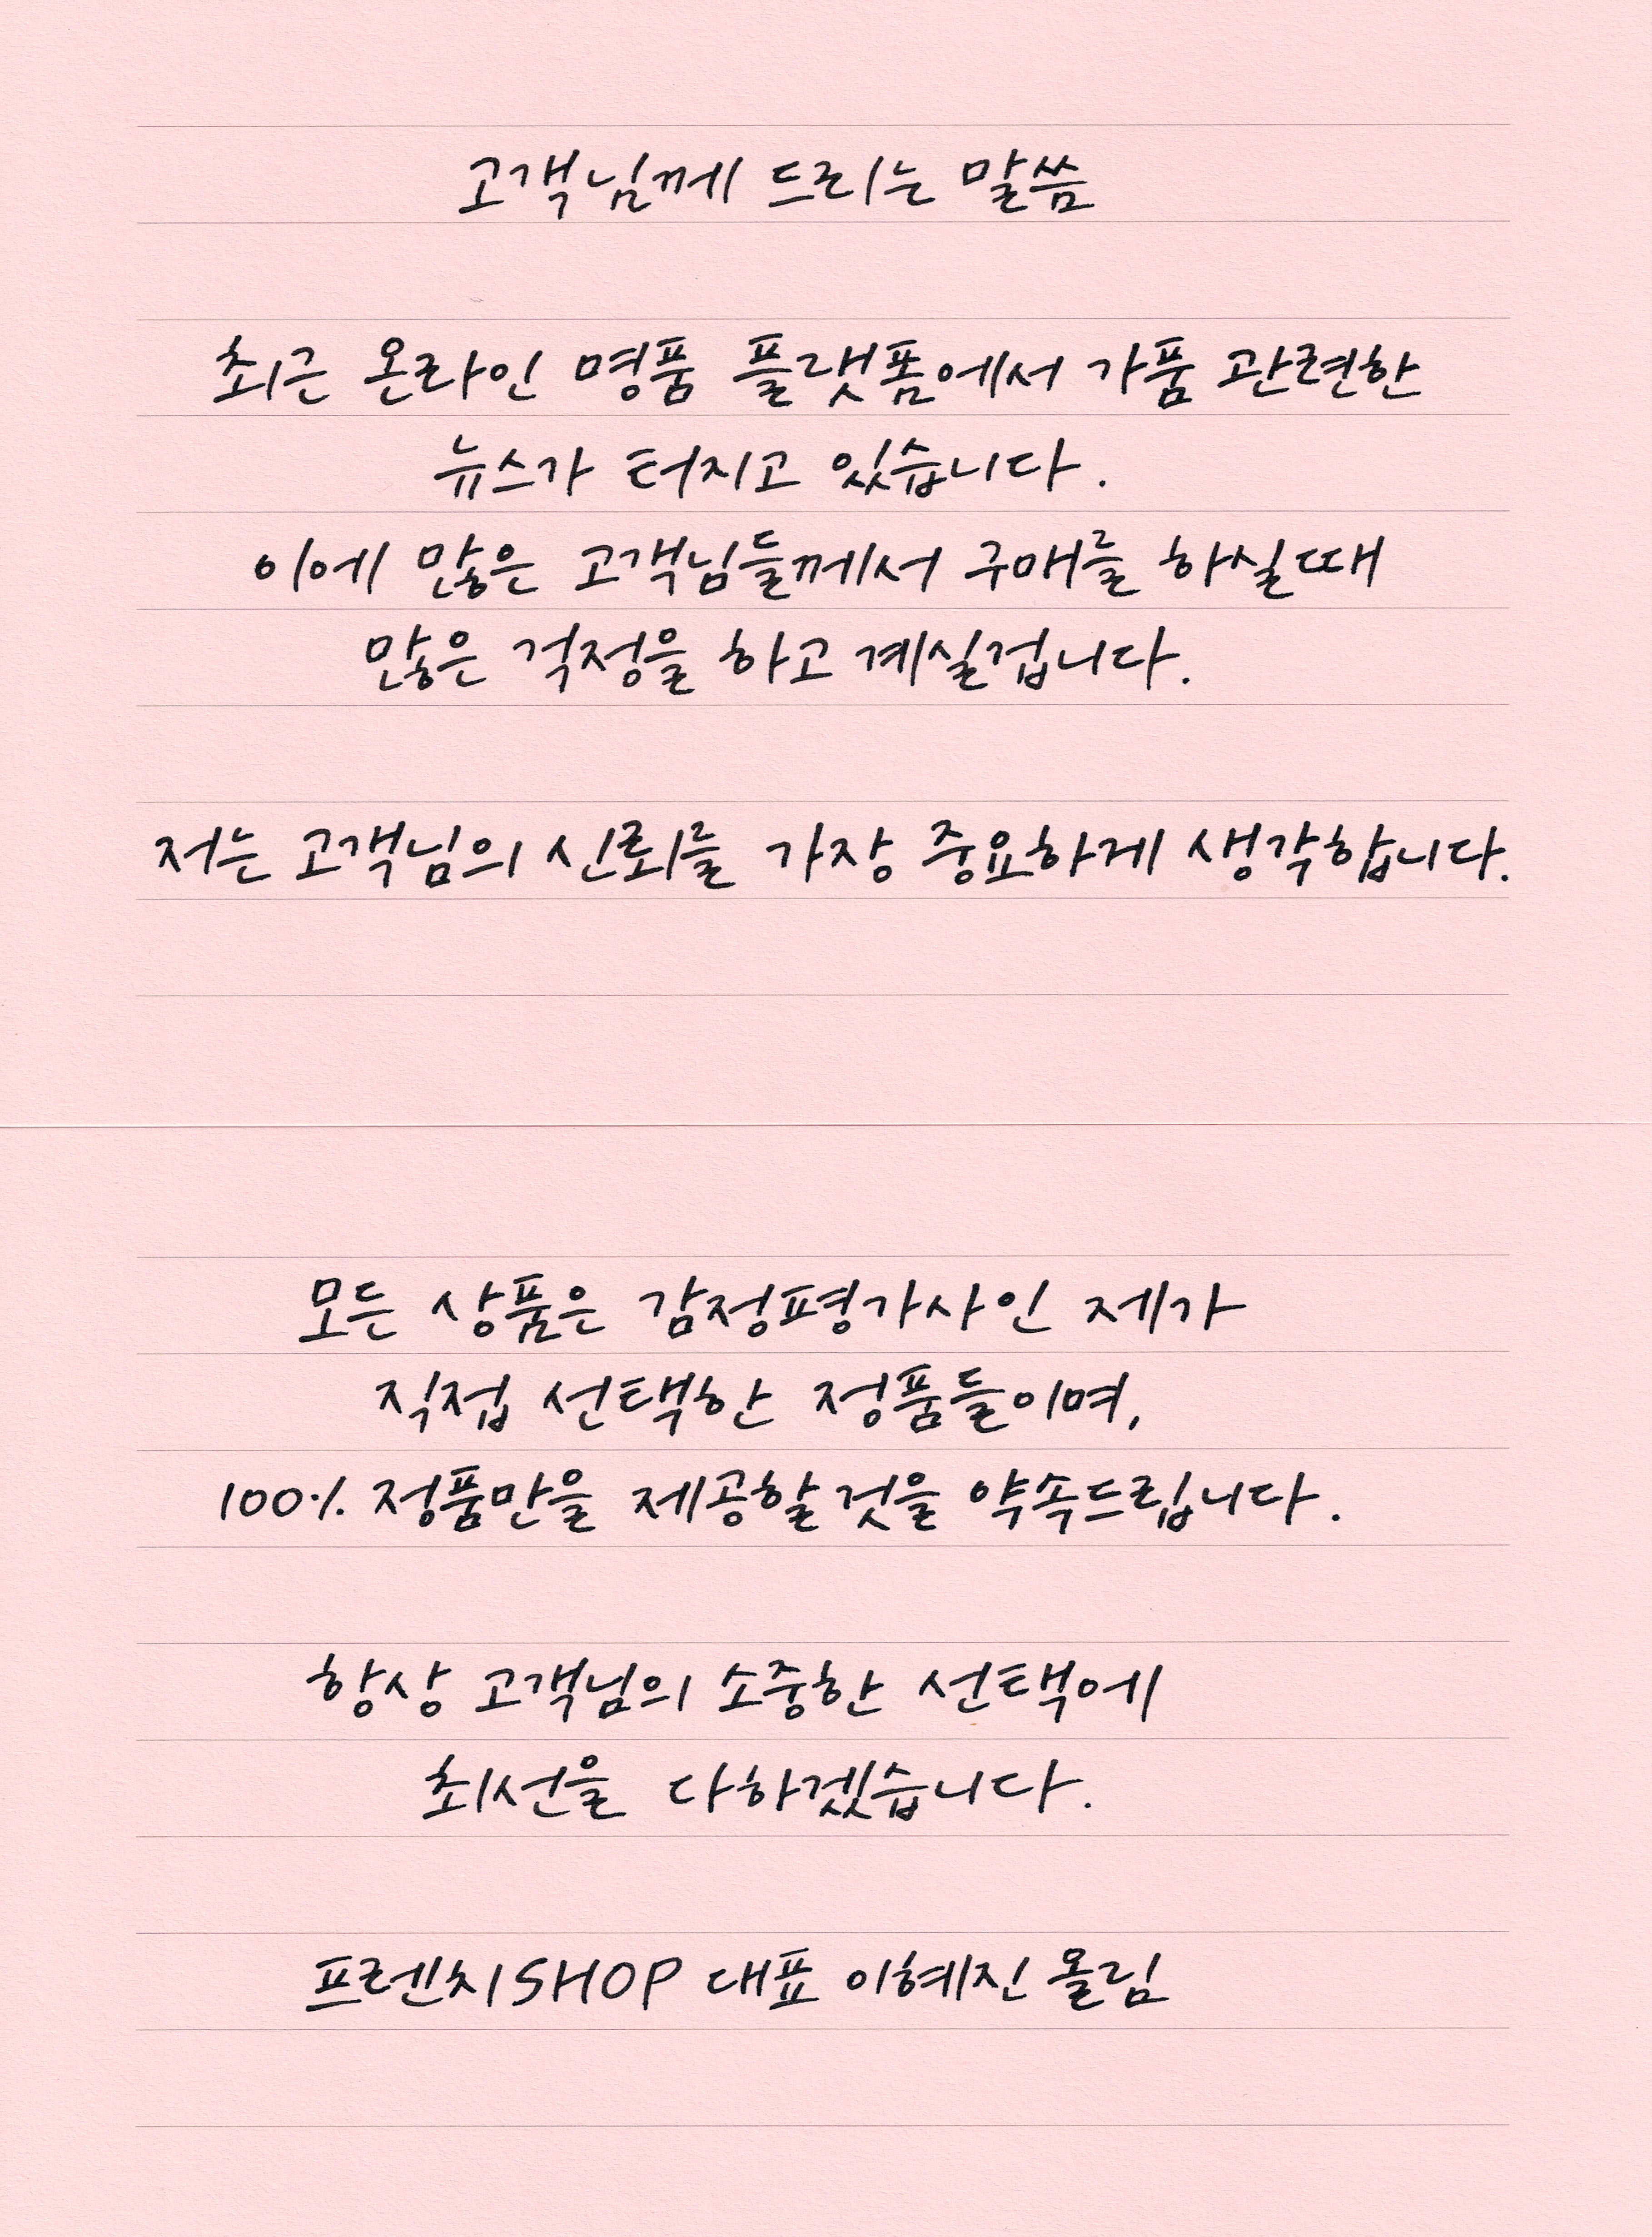 고객님께 드리는 말씀
최근 온라인 명품 플랫폼에서 가품 관련한
뉴스가 터지고 있습니다.
이에 많은 고객님들께서 구매를 하실때
많은 걱정을 하고 계실겁니다.
저는 고객님의 신뢰를 가장 중요하게 생각합니다.
모든 상품은 감정평가사인 제가
직접 선택한 정품들이며,
100% 정품만을 제공할것을 약속드립니다.
항상 고객님의 소중한 선택에
최선을 다하겠습니다.
프렌치SHOP 대표 이혜진 올림